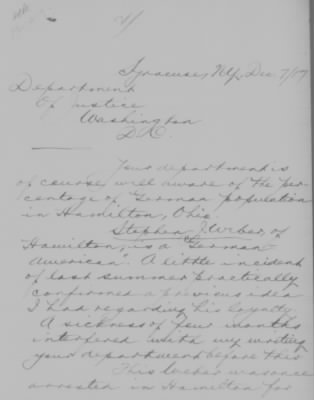 Syracuse, N.Y., Dec 7/17
Department
Of Justice
Washington
D.C.
Your department is
of course, well aware of the per-
centage of "German population
in Hamilton, Ohio.
Stephen J. Weber, of
Hamilton, is a "German
American". A little incident
of last summer practically
confirmed a previous idea
I had regarding his loyalty.
A sickness of four months
interfered with my writing
your department before this
This Weber was once
arrested in Hamilton for